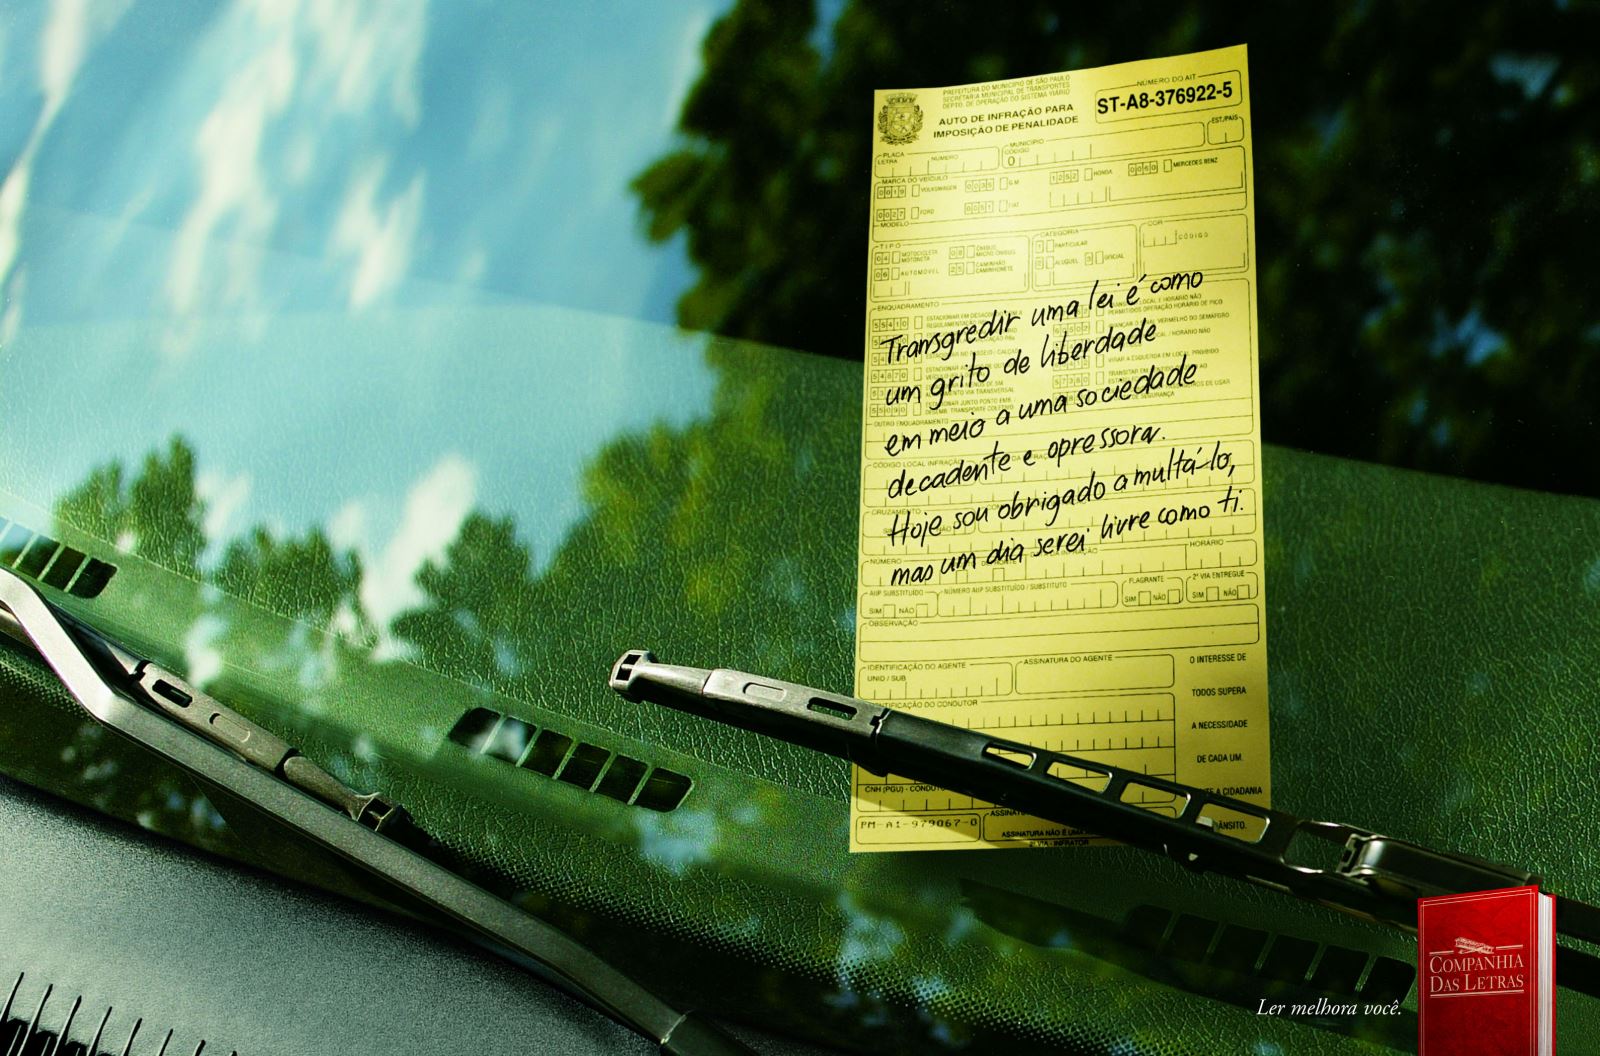 PREFEITURA DO MUNICÍPIO DE SÃO PAULO
SECRETARIA MUNICIPAL DE TRANSPORTES
DEPTO. DE OPERAÇÃO DO SISTEMA VIÁRIO
AUTO DE INFRAÇÃO PARA
IMPOSIÇÃO DE PENALIDADE
NÚMERO DO AIT
ST-A8-376922-5
PLACA
LETRA NÚMERO
MUNICÍPIO
CÓDIGO
0
EST/PAÍS
MARCA DO VEÍCULO
0019 VOLKSWAGEN 0035 G M 1252 HONDA 0060 MERCEDES BENZ
0027 FORD 0051 FIAT
MODELO
TIPO
04 MOTOCICLETA MOTONETA 08 ÔNIBUS MICRO ÔNIBUS
06 AUTOMÓVEL 25 CAMINHÃO CAMINHONETE
CATEGORIA
1 PARTICULAR
2 ALUGUEL 3 OFICIAL
COR
CÓDIGO
ENQUADRAMENTO
Transgredir uma lei é como
um grito de liberdade
em meio a uma sociedade
decadente e opressora.
Hoje sou obrigado a multá-lo,
mas um dia serei livre como ti.
OUTRO ENQUADRAMENTO
CÓDIGO LOCAL INFRAÇÃO
CRUZAMENTO
NÚMERO
HORÁRIO
AIIP SUBSTITUÍDO
SIM NÃO
NÚMERO AIIP SUBSTITUÍDO / SUBSTITUTO
FLAGRANTE
SIM NÃO
2ª VIA ENTREGUE
SIM NÃO
OBSERVAÇÃO
IDENTIFICAÇÃO DO AGENTE
UNID / SUB
ASSINATURA DO AGENTE
IDENTIFICAÇÃO DO CONDUTOR
O INTERESSE DE
TODOS SUPERA
A NECESSIDADE
DE CADA UM.
A CIDADANIA
CNH (PGU) -
PM-A1-979067-0
ASSINATURA NÃO É
Ler melhora você.
COMPANHIA
DAS LETRAS